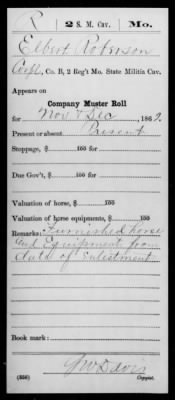 R 2 S. M. Cav. Mo.
Elbert Roberson
Corpl, Co. B, 2 Reg't Mo. State Militia Cav.
Appears on
Company Muster Roll
for Nov & Dec, 1862.
Present or absent Present
Stoppage, $ 100 for
Due Gov't, $ 100 for
Valuation of horse, $ 100
Valuation of horse equipments, $ 100
Remarks: Furnished horse
and Equipments from
date of enlistment
Book mark:
G W Davis
(356) Copyist.